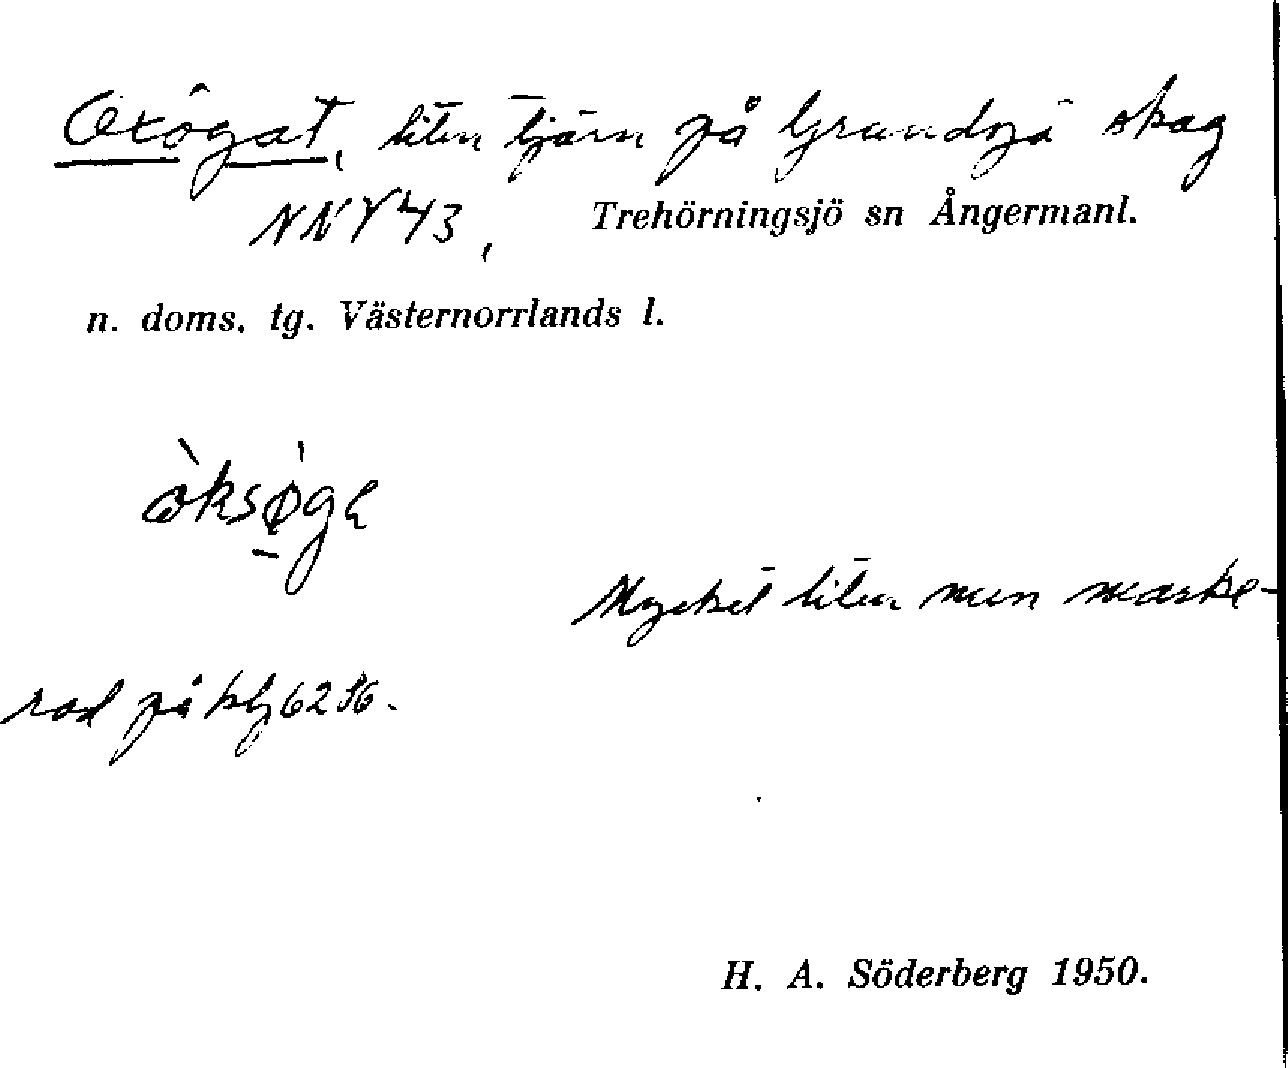 Oxögat, liten tjärn på Grundsjö skog
NNV 43, Trehörningsjö sn Ångermanl.
n. doms. tg. Västernorrlands l.
òksø̱̀ga
Mycket liten men marke-
rad på kbl 6256.
H. A. Söderberg 1950.